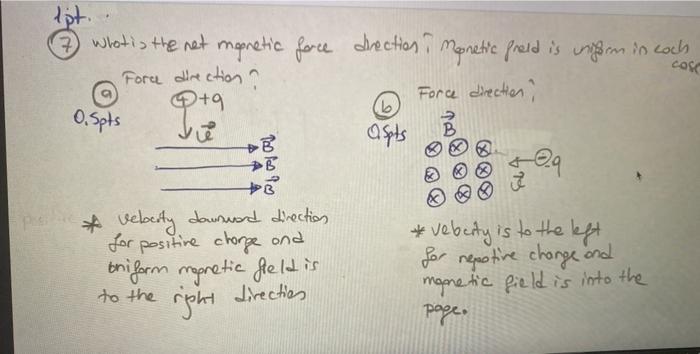 1pt.
7 what is the net magnetic force direction? Magnetic field is uniform in each case
a Force direction?
0.5pts
+ +q
v
B
B
B
* velocity downward direction
for positive charge and
uniform magnetic field is
to the right direction
b Force direction?
0.5pts
B
- -q
v
* velocity is to the left
for negative charge and
magnetic field is into the
page.